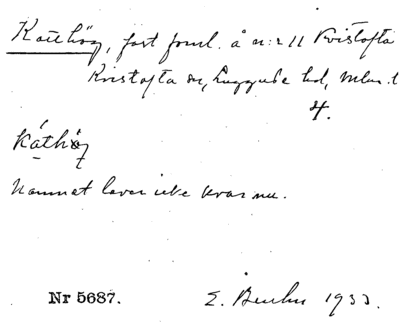 Katthög, fast forml. å n:r 11 Kvistofta
Kvistofta sn, Luggude hd, Mlm. l.
4.
káthög
Namnet lever icke kvar nu.
Nr 5687. E. 1933.